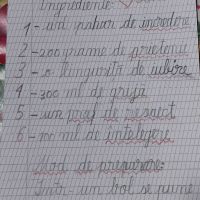 Ingrediente:
1 - un pahar de incredere
2 - 200 grame de prietenie
3 - o linguriță de iubire
4 - 300 ml de grijă
5 - un praf de respect
6 - 100 ml de intelegere
Mod de preparare:
Intr-un bol se pune